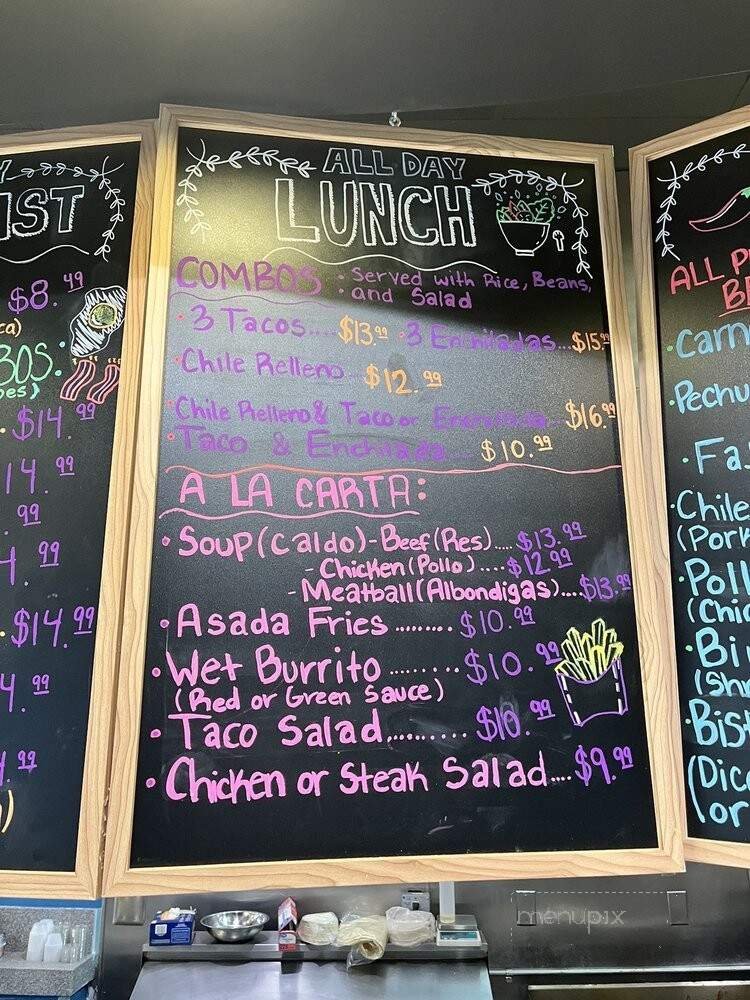 Y
IST
$8.49
ca)
BOS:
es)
$14.99
14.99
.99
4.99
$14.99
4.99
4.99
)
ALL DAY
LUNCH
COMBOS • Served with Rice, Beans,
• and Salad
• 3 Tacos....$13.99 • 3 Enchiladas...$15.99
• Chile Relleno... $12.99
• Chile Relleno & Taco or Enchilada... $16.99
• Taco & Enchilada... $10.99
A LA CARTA:
• Soup (Caldo) - Beef (Res).... $13.99
- Chicken (Pollo) .... $12.99
- Meatball (Albondigas)....$13.99
• Asada Fries ......... $10.99
• Wet Burrito ........ $10.99
(Red or Green Sauce)
• Taco Salad.......... $10.99
• Chicken or Steak Salad.... $9.99
ALL P
B
• Carn
• Pechu
• Fa
• Chile
(Pork
• Poll
(Chic
• Bi
(Sh
• Bist
(Dic
(or
menupix